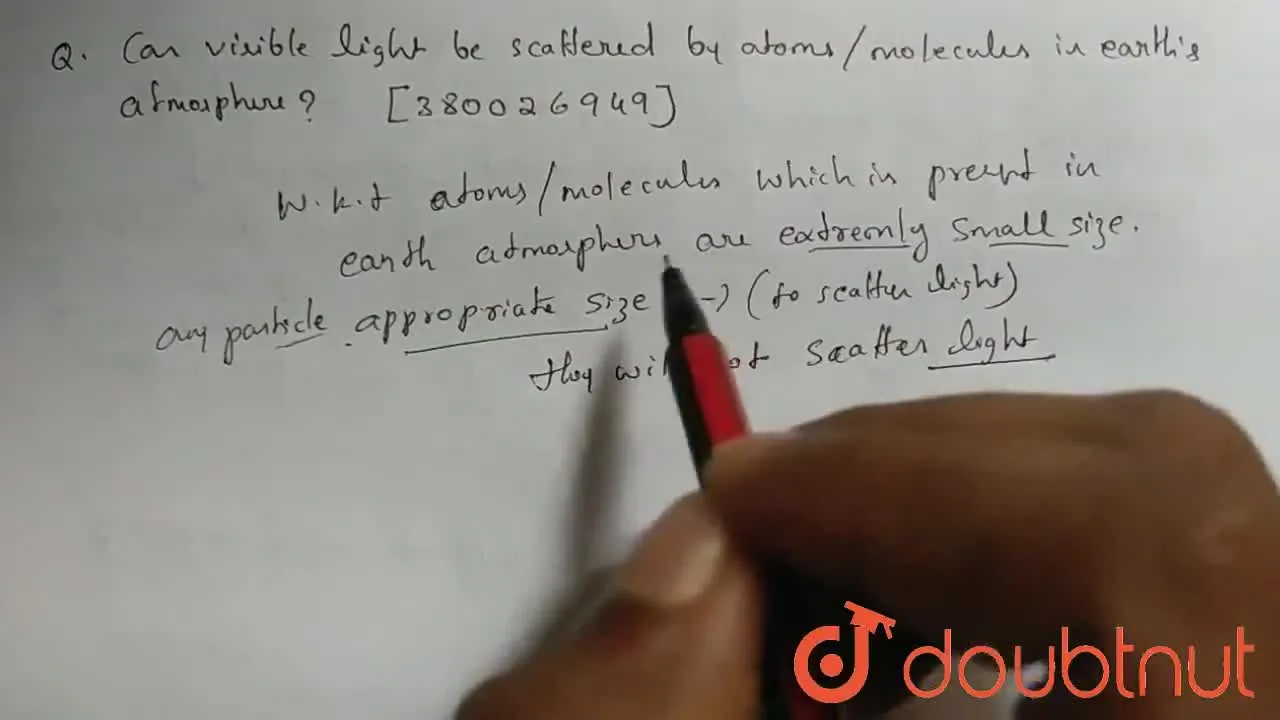 Q. Can visible light be scattered by atoms/molecules in earth's
atmosphere? [380026949]
W.k.t atoms/molecules which in present in
earth atmosphers are extremly small size.
any particle appropriate size → (to scatter light)
they will not scatter light
doubtnut